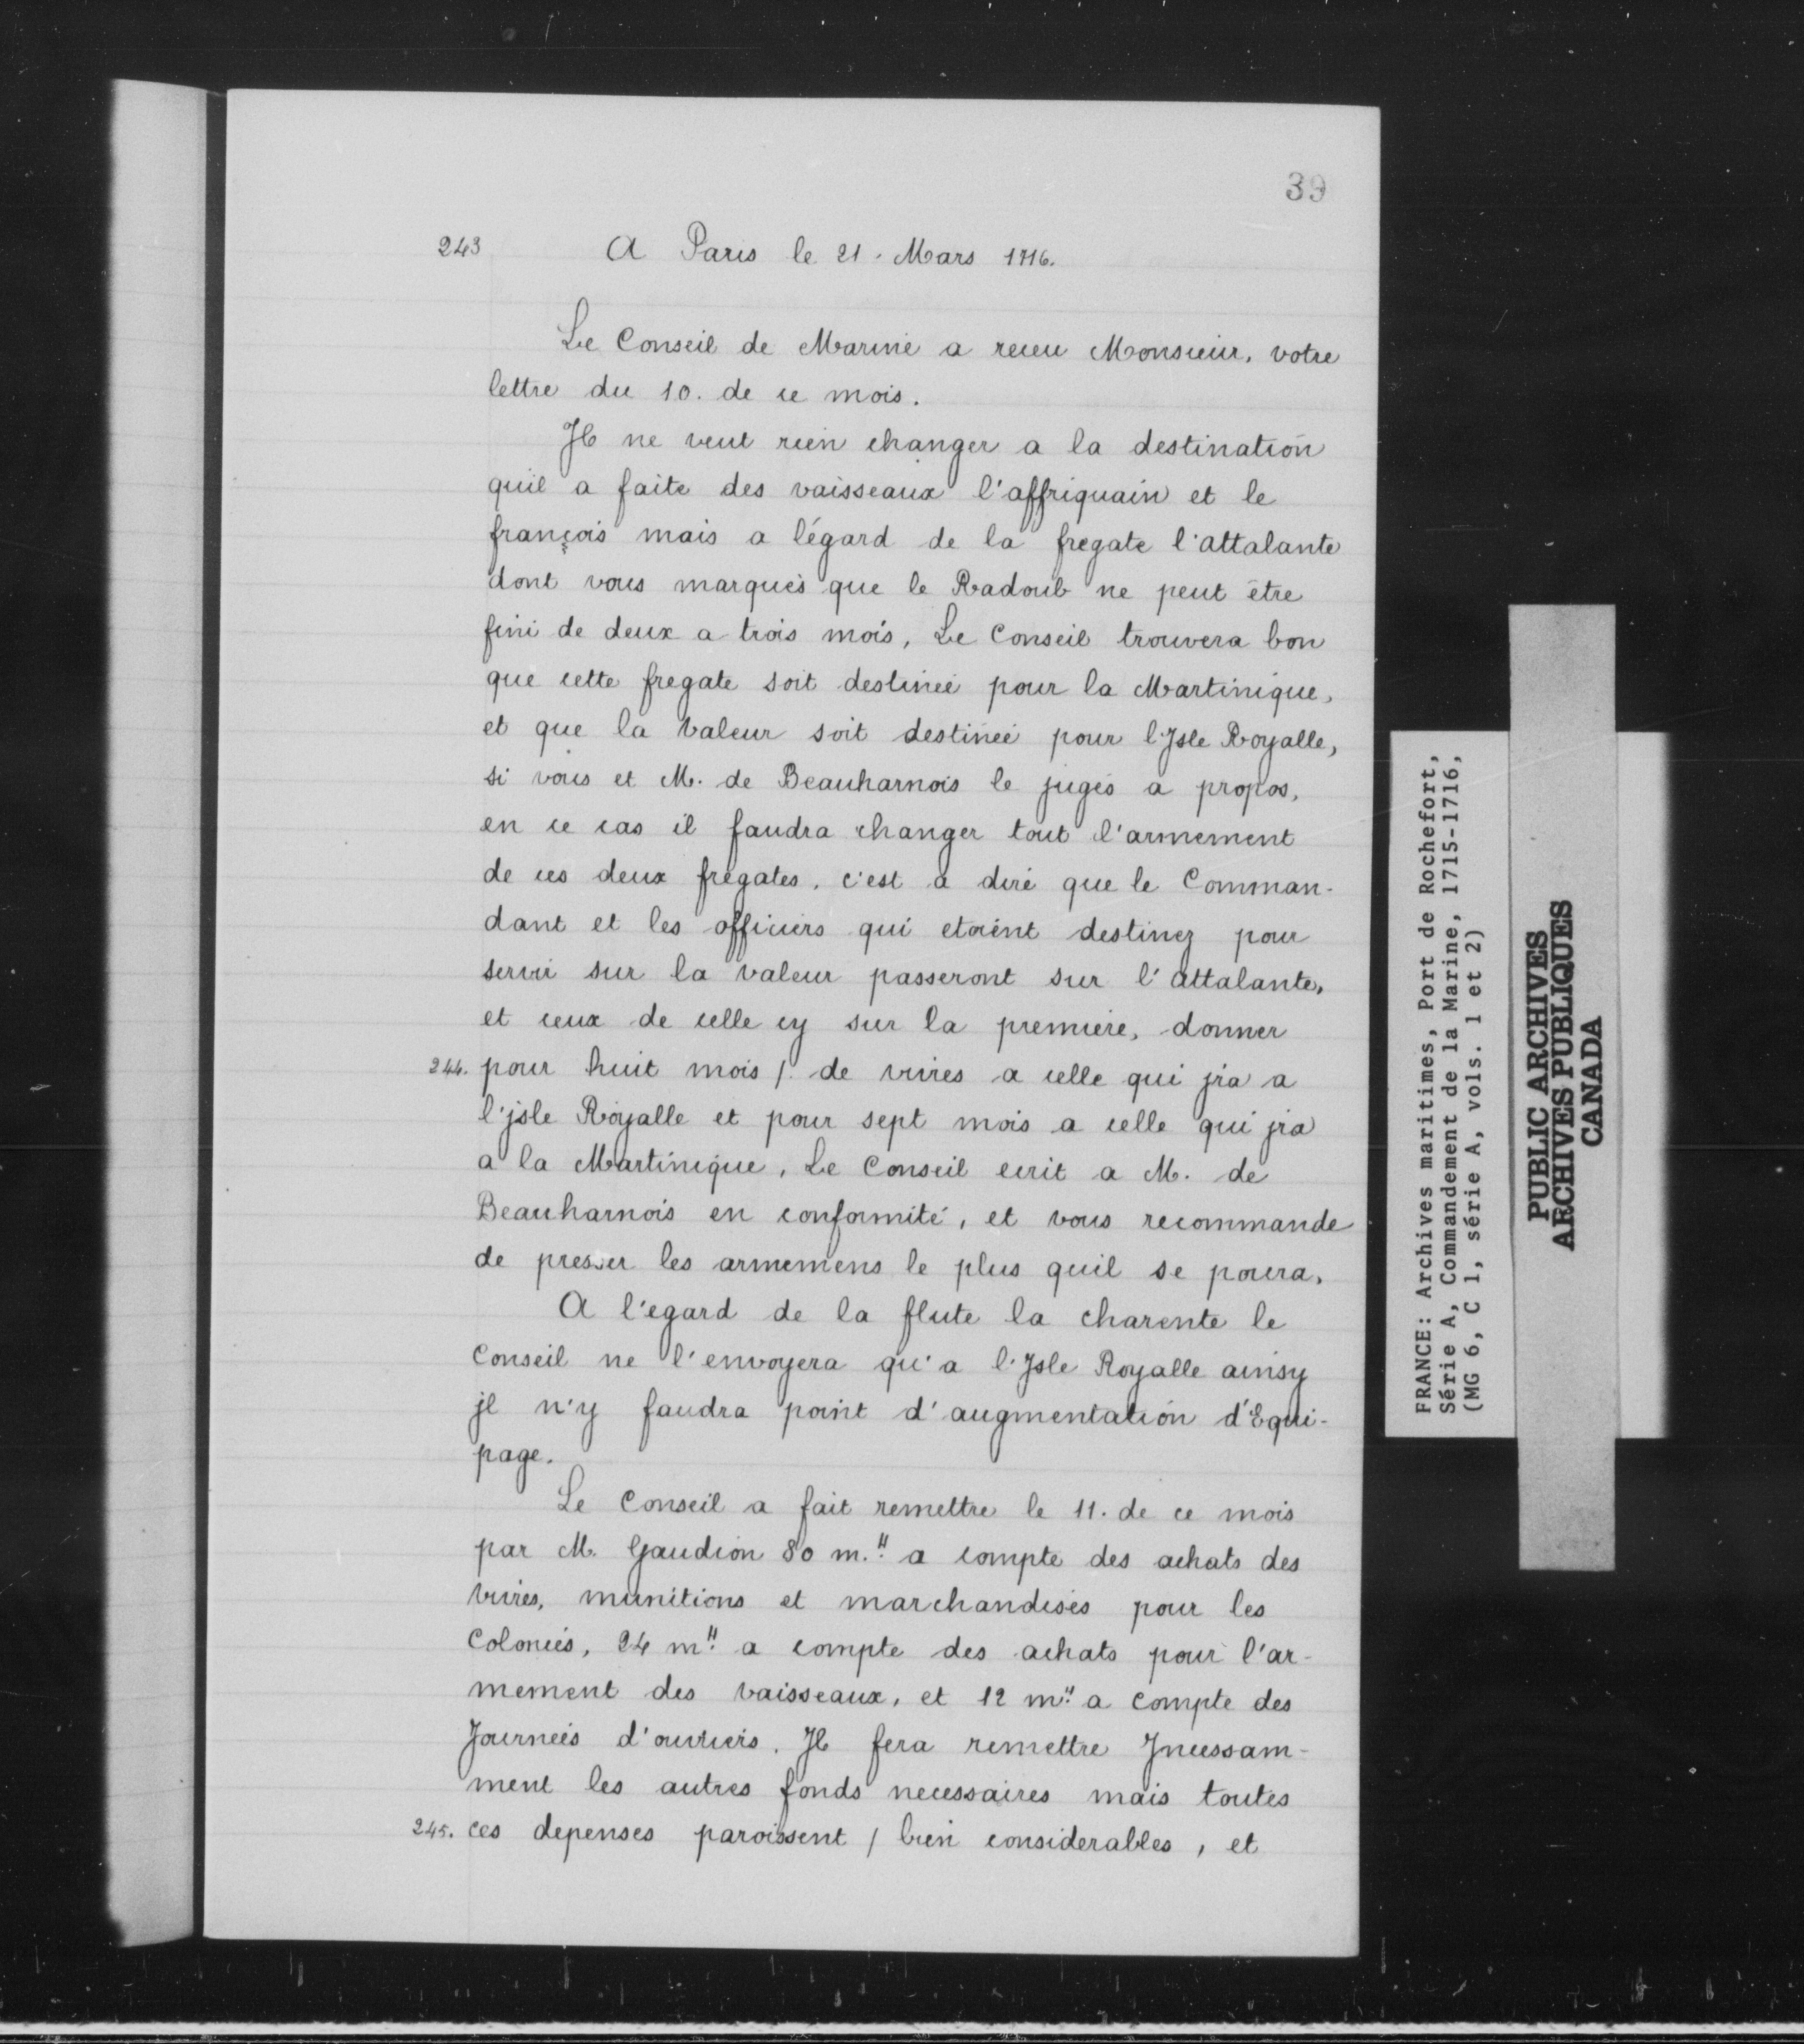 39
243 A Paris le 21. Mars 1716.
Le Conseil de Marine a receu Monsieur, votre
lettre du 10. de ce mois.
Il ne veut rien changer a la destination
quil a faite des vaisseaux l'affriquain et le
françois mais a l'égard de la fregate l'attalante
dont vous marqués que le Radoub ne peut être
fini de deux a trois mois, Le Conseil trouvera bon
que cette fregate soit destineé pour la Martinique,
et que la Valeur soit destineé pour l'Isle Royalle,
si vous et M. de Beauharnois le jugés a propos,
en ce cas il faudra changer tout l'armement
de ces deux frégates, c'est a dire que le Comman-
dant et les officiers qui etoient destinez pour
servir sur la Valeur passeront sur l'attalante,
et ceux de celle cy sur la premiere, donner
244. pour huit mois / de vivres a celle qui jra a
l'jsle Royalle et pour sept mois a celle qui jra
a la Martinique, Le Conseil ecrit a M. de
Beauharnois en conformité, et vous recommande
de presser les armemens le plus quil se poura,
A l'egard de la flute la charente le
Conseil ne l'envoyera qu'a l'Isle Royalle ainsy
jl n'y faudra point d'augmentation d'Equi-
page.
Le Conseil a fait remettre le 11. de ce mois
par M. Gaudion 80 m.₶ a compte des achats des
vivres, munitions et marchandises pour les
Colonies, 24 m₶ a compte des achats pour l'ar-
mement des vaisseaux, et 12 m₶ a compte des
Journeés d'ouvriers. Il fera remettre Jncessam-
ment les autres fonds necessaires mais toutes
245. ces depenses paroissent / bien considerables, et
FRANCE: Archives maritimes, Port de Rochefort,
Série A, Commandement de la Marine, 1715-1716,
(MG 6, C 1, série A, vols. 1 et 2)
PUBLIC ARCHIVES
ARCHIVES PUBLIQUES
CANADA